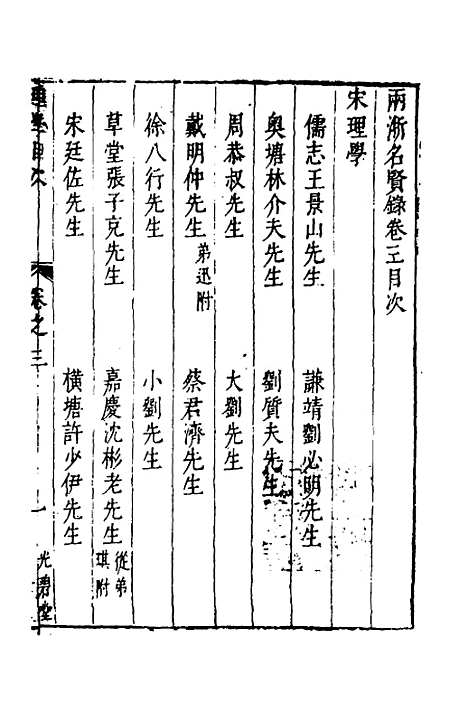 兩浙名賢錄卷三目次
宋理學
儒志王景山先生　謙靖劉必明先生
奧塘林介夫先生　劉質夫先生
周恭叔先生　大劉先生
戴明仲先生弟迅附　蔡君濟先生
徐八行先生　小劉先生
草堂張子充先生　嘉慶沈彬老先生從弟琪附
宋廷佐先生　橫塘許少伊先生
理學目次　卷之三　一　光碧堂